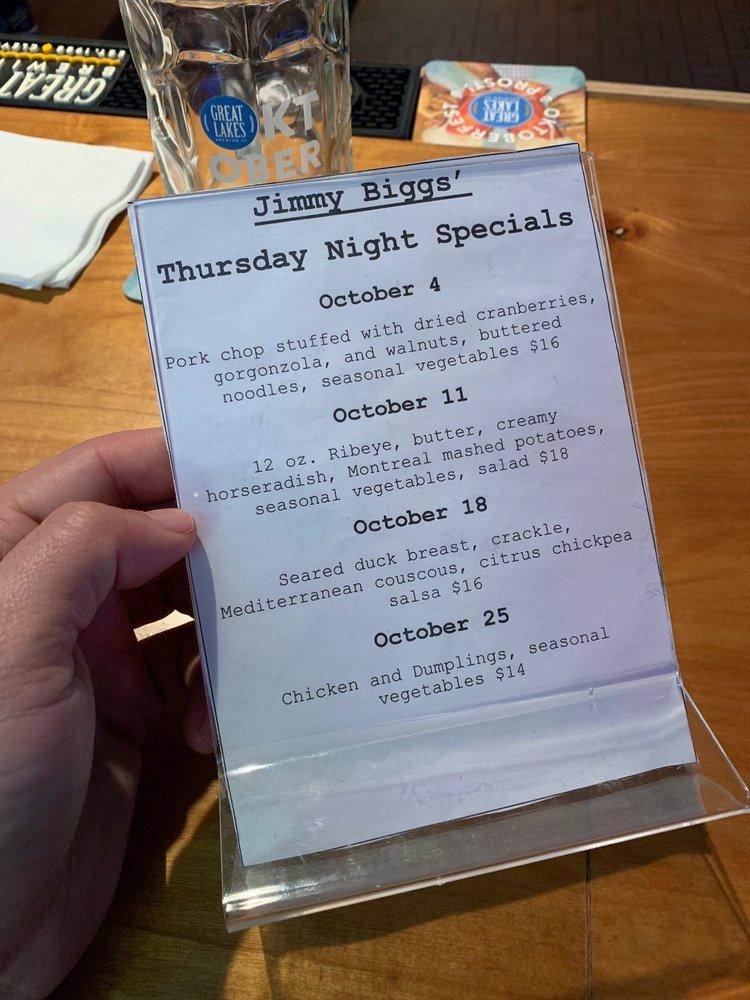 GREAT
BREWI
GREAT
LAKES
BREWING CO.
KT
OBER
OKTOBERFEST
PROST!
GREAT
LAKES
Jimmy Biggs'
Thursday Night Specials
October 4
Pork chop stuffed with dried cranberries,
gorgonzola, and walnuts, buttered
noodles, seasonal vegetables $16
October 11
12 oz. Ribeye, butter, creamy
horseradish, Montreal mashed potatoes,
seasonal vegetables, salad $18
October 18
Seared duck breast, crackle,
Mediterranean couscous, citrus chickpea
salsa $16
October 25
Chicken and Dumplings, seasonal
vegetables $14